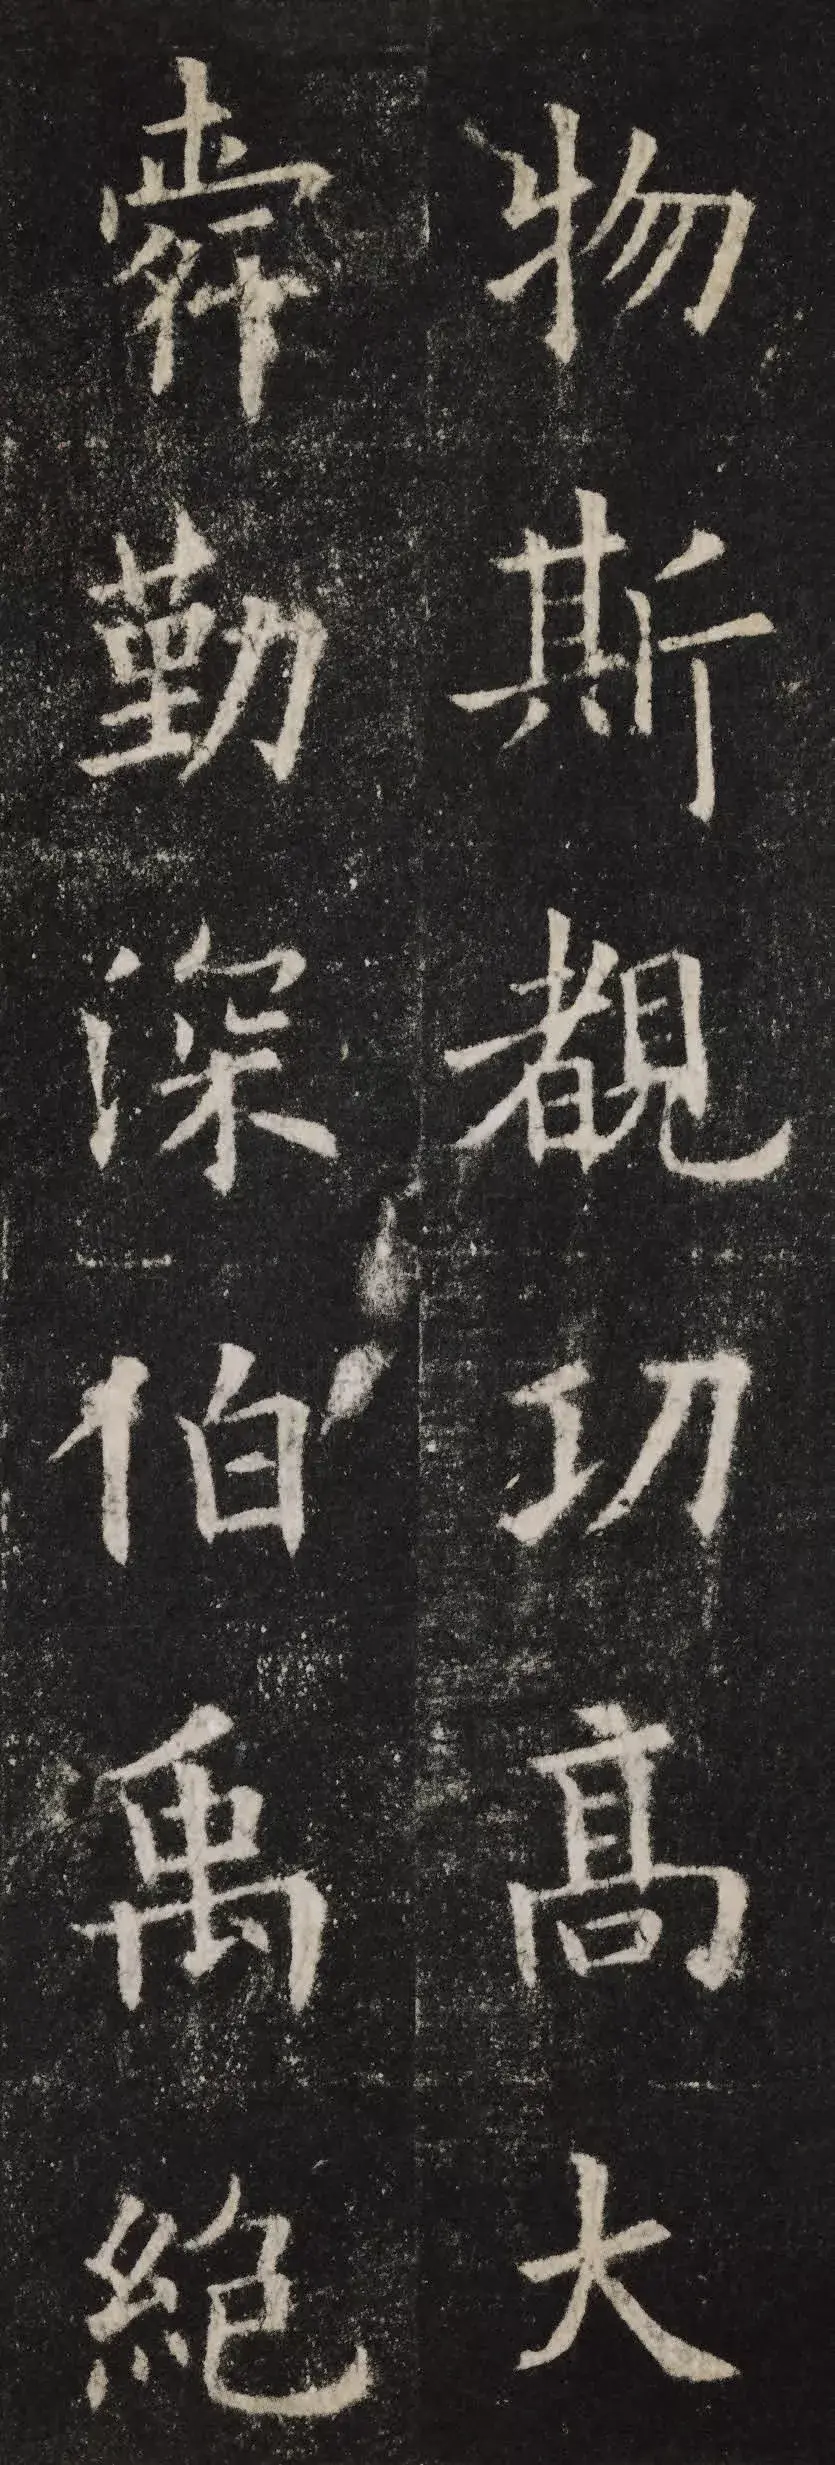 物斯覩功高大
舜勤深伯禹絶